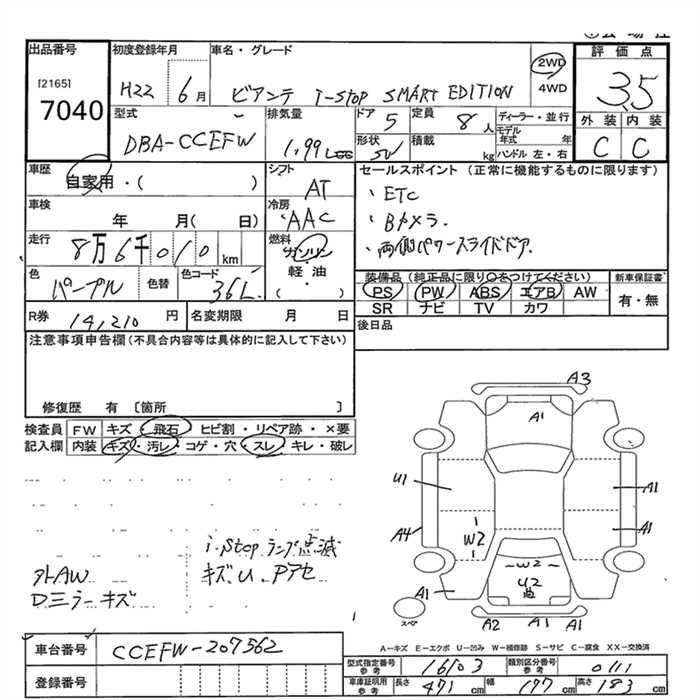 出品番号
[2165]
7040
初度登録年月
H22 6月
車名・グレード
ビアンテ i-STOP SMART EDITION
2WD
4WD
評価点
3.5
外装 内装
C C
型式
DBA-CCEFW
排気量
1.99
ドア
5
定員
8人
形状
積載
kg
ディーラー・並行
モデル年式 年
ハンドル 左・右
車歴
自家用・( )
シフト
AT
セールスポイント (正常に機能するものに限ります)
、ETC
、Bカメラ.
、両側パワースライドドア.
車検
年 月( 日)
冷房
AAC
走行
8万6千010km
燃料
ガソリン
軽油
( )
色
パープル
色替
色コード
36L.
装備品 (純正品に限り○をつけてください)
PS PW ABS エアB AW
SR ナビ TV カワ
新車保証書
有・無
R券 14,210円
名変期限 月 日
後日品
注意事項申告欄(不具合内容等は具体的に記入して下さい)
修復歴 有 〔箇所 〕
検査員
記入欄
FW キズ・飛石・ヒビ割・リペア跡・×要
内装 キズ・汚レ・コゲ・穴・スレ・キレ・破レ
i-stop ランプ点滅
キズ U. Pアセ
外AW
Dミラーキズ
A3
A1
U1
A1
A4
A1
W2
W2
U2
A1
スペア
A2 A1 A1
A-キズ E-エクボ U-凹み W-補修跡 S-サビ C-腐食 XX-交換済
車台番号
CCEFW-207562
登録番号
型式指定番号
参考
16103
類別区分番号
参考
0111
車庫証明用
参考
長さ 471cm
幅 177cm
高さ 183cm